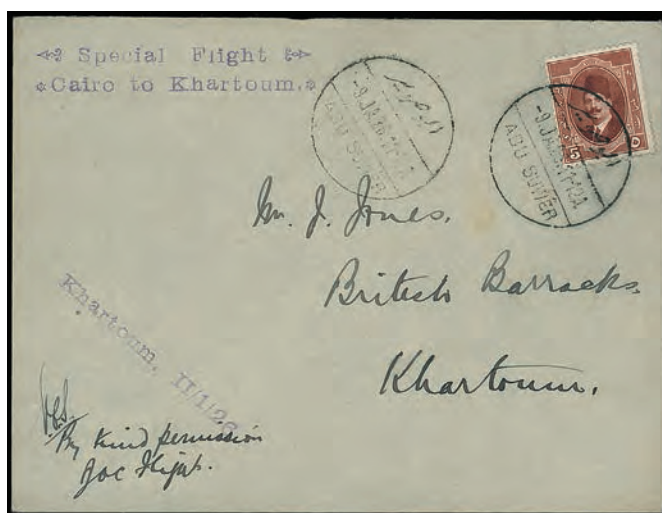 Special Flight
Cairo to Khartoum.
ABU SUWER
5
ABU SUWER
Mr. J. Jones.
British Barracks.
Khartoum.
Khartoum, II/1/26
By kind permission